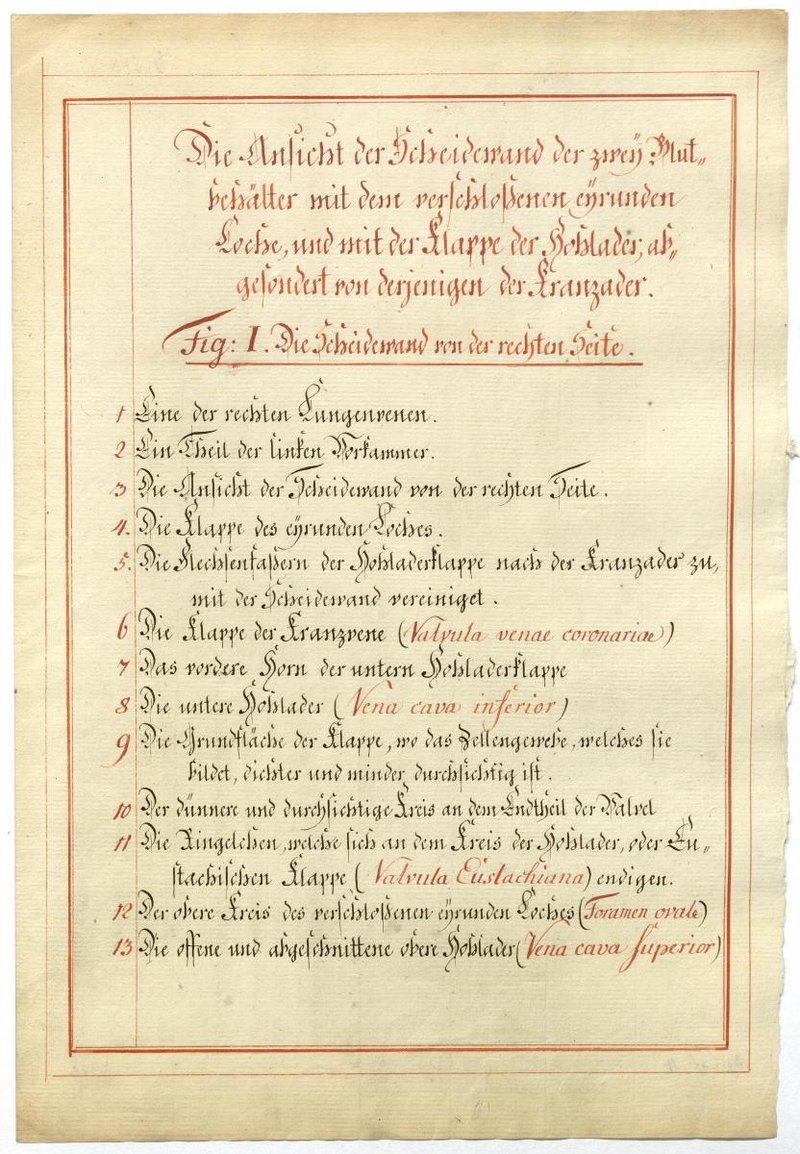 Die Ansicht der Scheidewand der zweÿ Blut„
behälter mit dem verschloßenen eÿrunden
Loche, und mit der Klappe der Hohlader, ab„
gesondert von derjenigen der Kranzader.
Fig: I. Die Scheidewand von der rechten Seite.
1 Eine der rechten Lungenvenen.
2 Ein Theil der linken Vorkammer.
3 Die Ansicht der Scheidewand von der rechten Seite.
4. Die Klappe des eÿrunden Loches.
5. Die Flechsenfaßern der Hohladerklappe nach der Kranzader zu,
mit der Scheidewand vereiniget.
6 Die Klappe der Kranzvene (Valvula venae coronariae)
7 Das vordere Horn der untern Hohladerklappe
8 Die untere Hohlader (Vena cava inferior)
9 Die Grundfläche der Klappe, wo das Zellengewebe, welches sie
bildet, dichter und minder durchsichtig ist.
10 Der dünnere und durchsichtige Kreis an dem Endtheil der Valvel
11 Die Ringelchen, welche sich an dem Kreis der Hohlader, oder Eu„
stachischen Klappe (Valvula Eustachiana) endigen.
12 Der obere Kreis des verschloßenen eÿrunden Loches (Foramen ovale)
13 Die offene und abgeschnittene obere Hohlader (Vena cava superior)